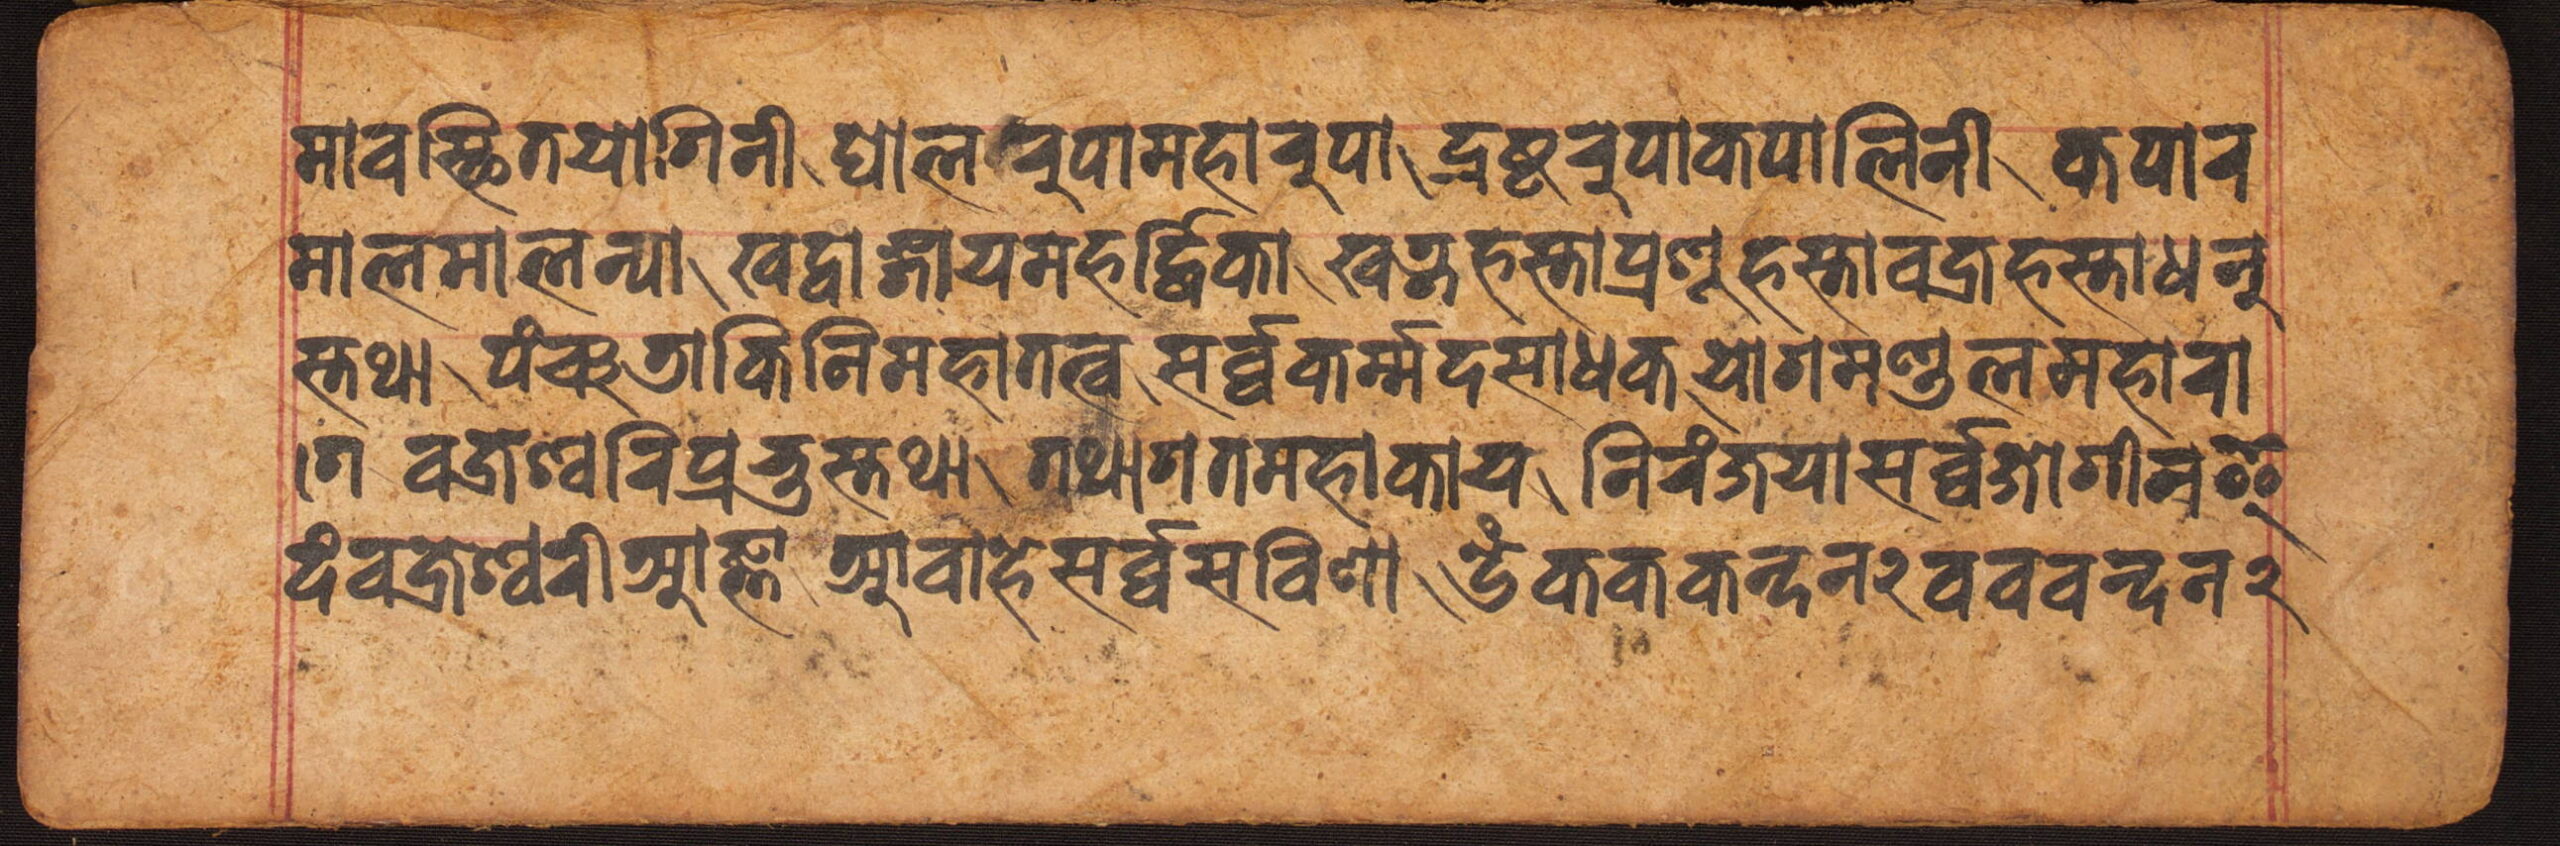 मावस्थितयोगिनी घोलरुपामहारुपा द्रष्टरुपाकपालिनी कपार
मालमालन्या खद्वाङ्गायमहर्द्धिका खड्गहस्ताप्रशूहस्तावज्रहस्ताधनु
स्तथा पंञ्चडाकिनिमहातत्व सर्व्वकर्म्मदसाधक योगमण्डलमहारा
ग वज्रेश्वरिप्रभुस्तथा तथागतमहाकाय निरंजया सर्व्वज्ञोगीन
दंवज्रेश्वरीआज्ञा आवाहेसर्व्वसविणी ॐकककन्दन२वववन्दन२